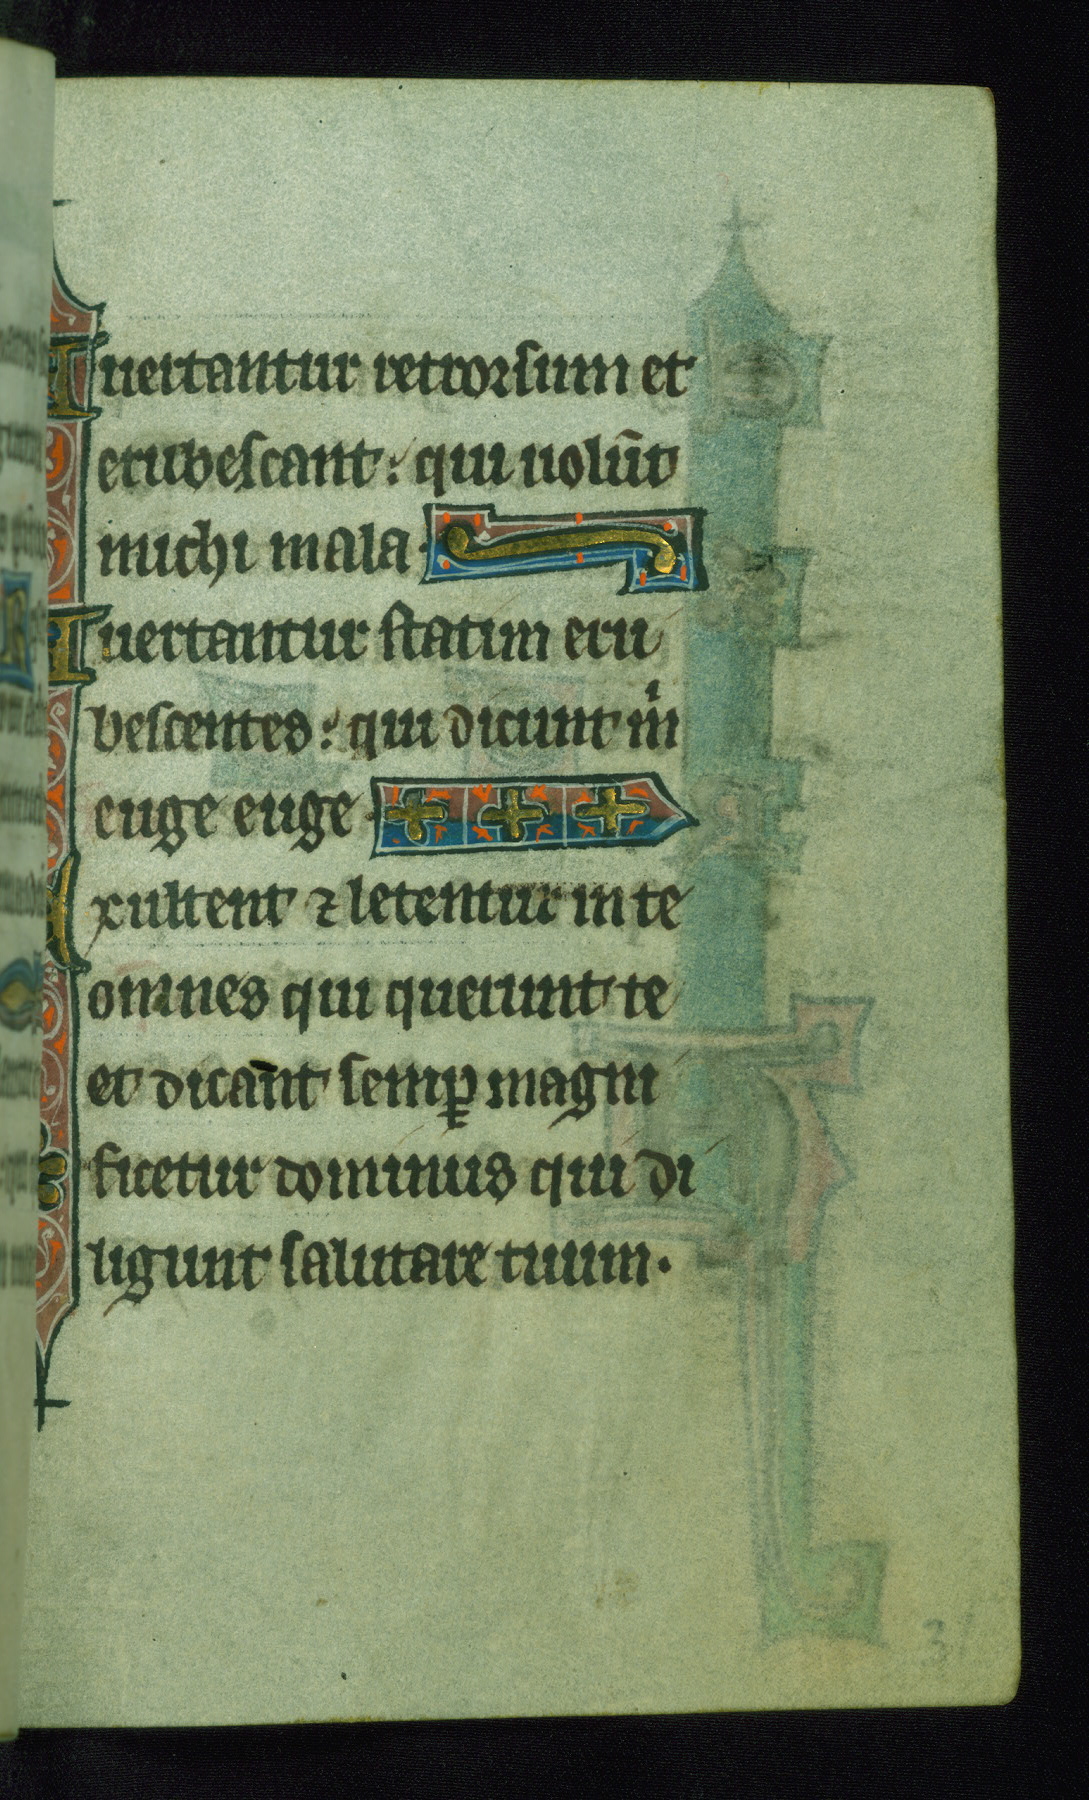 Auertantur retrorsum et
erubescant: qui uolūt
michi mala
Auertantur statim eru
bescentes: qui dicunt mͥ
euge euge
Exultent ⁊ letentur in te
omnes qui querunt te
et dicānt semꝑ magni
ficetur dominus qui di
ligunt salutare tuum.
31